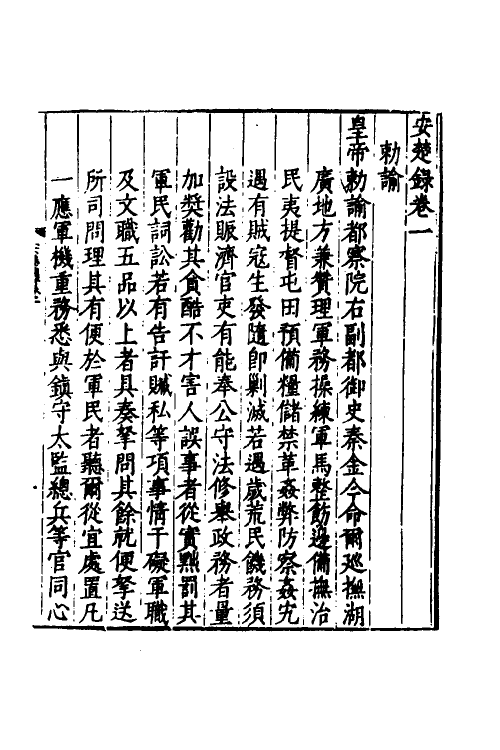 安楚錄卷一
勅諭
皇帝勅諭都察院右副都御史秦金今命爾巡撫湖
廣地方兼贊理軍務操練軍馬整飭邊備撫治
民夷提督屯田預備糧儲禁革姦弊防察姦宄
遇有賊寇生發隨即剿滅若遇歲荒民饑務須
設法賑濟官吏有能奉公守法修舉政務者量
加獎勸其貪酷不才害人誤事者從實黜罰其
軍民詞訟若有告訐贓私等項事情干礙軍職
及文職五品以上者具奏拏問其餘就便拏送
所司問理其有便於軍民者聽爾從宜處置凡
一應軍機重務悉與鎮守太監總兵等官同心